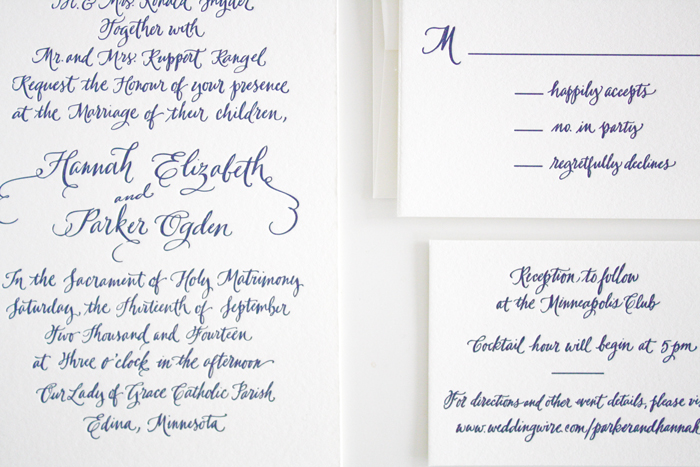 & Mrs. Ronald Snyder
Together with
Mr. and Mrs. Ruppert Rangel
Request the Honour of your presence
at the Marriage of their children,
Hannah Elizabeth
and
Parker Ogden
In the Sacrament of Holy Matrimony
Saturday, the Thirteenth of September
Two Thousand and Fourteen
at Three o'clock in the afternoon
Our Lady of Grace Catholic Parish
Edina, Minnesota
M
happily accepts
no. in party
regretfully declines
Reception to follow
at the Minneapolis Club
Cocktail hour will begin at 5 pm
For directions and other event details, please vi
www.weddingwire.com/parkerandhannah